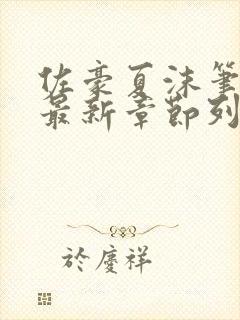 佐豪夏沫筆
最新章節列
於慶祥